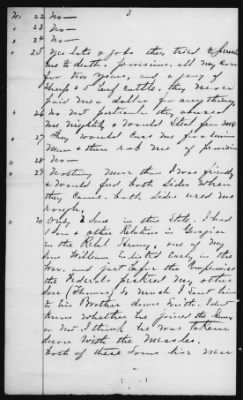 3
No 22 No—
" 23 No—
" 24 No—
" 25 No lots & jobs they tried to
me to death. provisions. all my corn
for two years, and a gang of
Sheep & Beef cattle. they never
paid me a dollar for any thing.
26 No not particular they abused
me mightily & would steal from me
27 They would curse me for a union
man & then rob me of provision
28 No—
" 29 Nothing more than I was friendly
& would feed both sides when
they came. both sides used me
rough.
30 Only 2 Sons in the State. I had
1 Son & other Relatives in Georgia
in the Rebel Army, one of my
Sons William Enlisted Early in the
War. and just before the
the Federals my other
Son (Thomas) so much I sent him
to his Brother down South. I dont
know whether he joined the Army
or not. I think he was taken
down with the Measles.
both of these Sons